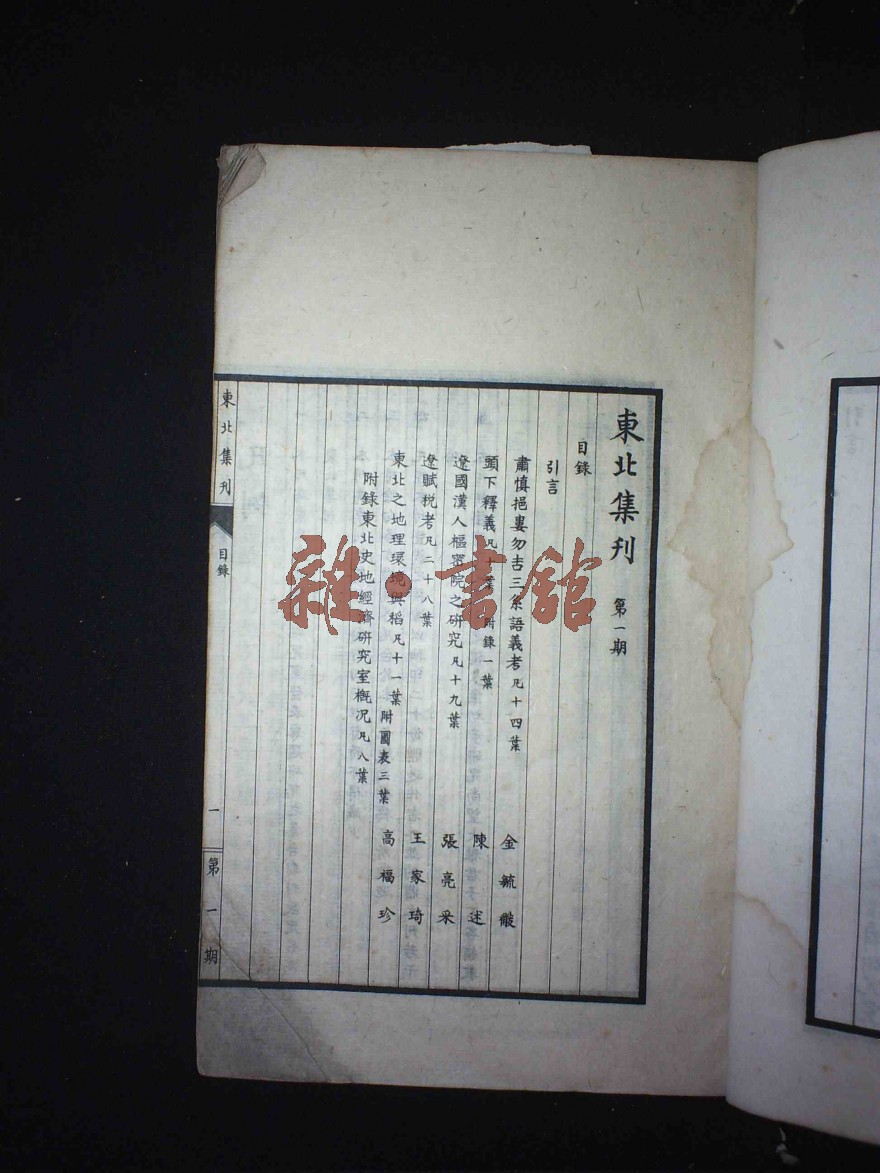 東北集刊 第一期
目錄
引言
肅慎挹婁勿吉三系語義考凡十四葉 金毓黻
頭下釋義凡十葉 附錄一葉 陳述
遼國漢人樞密院之研究凡十九葉 張亮采
遼賦稅考凡二十八葉 王家琦
東北之地理環境與稻凡十一葉 附圖表三葉 高福珍
附錄東北史地經濟研究室概況凡八葉
東北集刊 目錄 一 第一期
雜·書館
引言